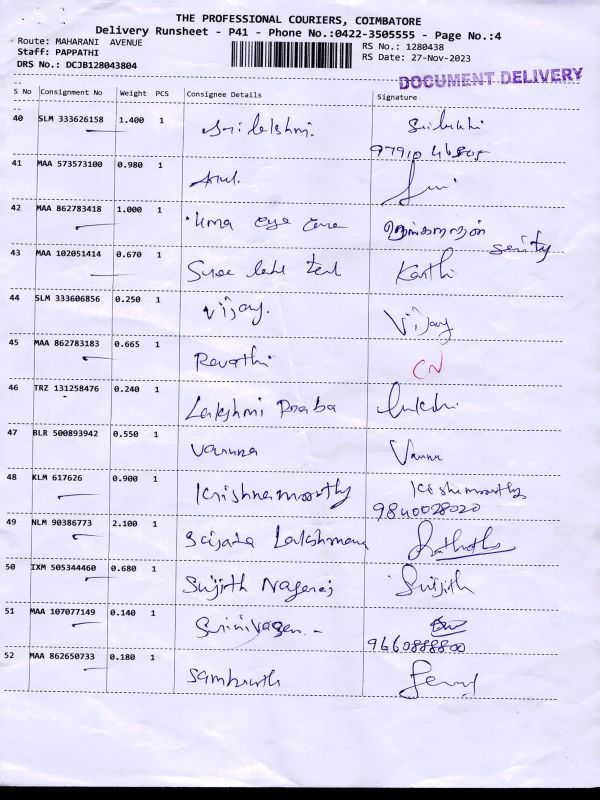 THE PROFESSIONAL COURIERS, COIMBATORE
Delivery Runsheet - P41 - Phone No.:0422-3505555 - Page No.:4
Route: MAHARANI AVENUE
Staff: PAPPATHI
DRS No.: DCJB128043804
RS No.: 1280438
RS Date: 27-Nov-2023
DOCUMENT DELIVERY
S No Consignment No Weight PCS Consignee Details Signature
40 SLM 333626158 1.400 1 Srilakshmi.
41 MAA 573573100 0.980 1 Arul.
42 MAA 862783418 1.000 1 Uma eye care
43 MAA 102051414 0.670 1 Karthi
44 SLM 333606856 0.250 1 Vijay. Vijay
45 MAA 862783183 0.665 1 Revathi CN
46 TRZ 131258476 0.240 1 Lakshmi Praba
47 BLR 500893942 0.550 1 Varuna
48 KLM 617626 0.900 1 Krishnamoorthy Krishnamoorthy
9840028020
49 NLM 90386773 2.100 1 Lakshmana
50 IXM 505344460 0.680 1 Sujith Nageraj Sujith
51 MAA 107077149 0.140 1 Srinivasan
9660888800
52 MAA 862650733 0.180 1